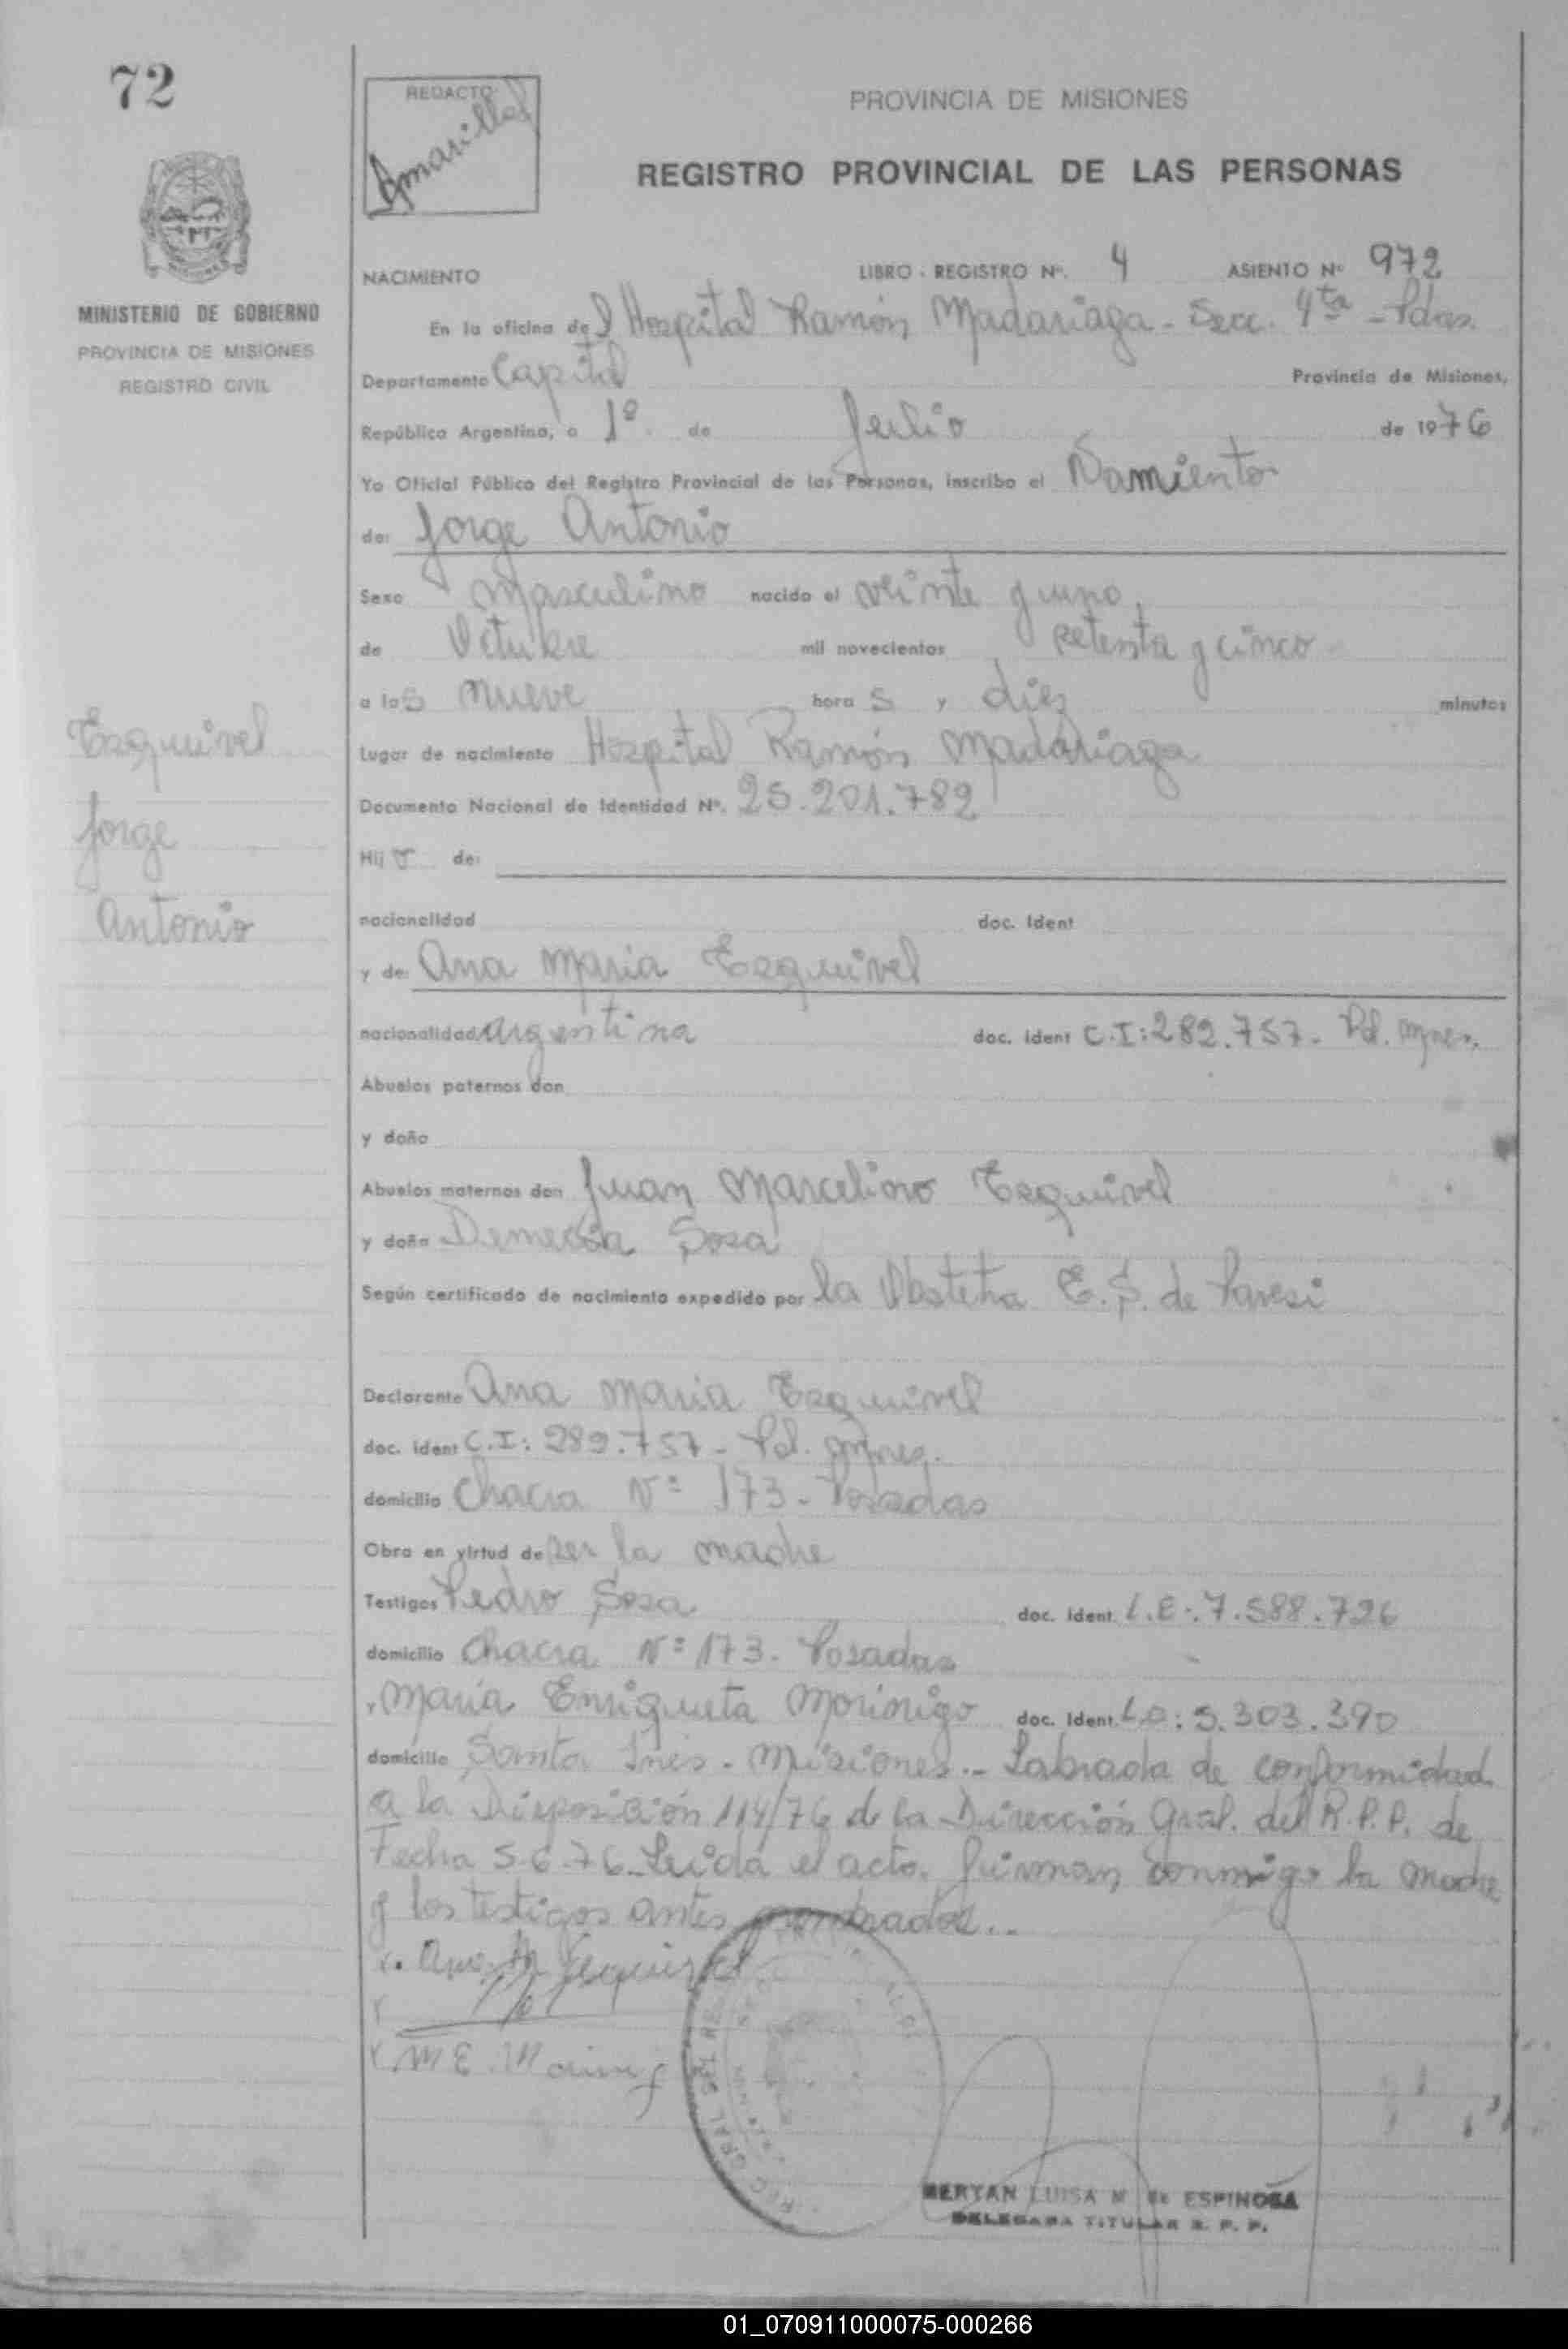 72
REDACTO
Amarilla
PROVINCIA DE MISIONES
REGISTRO PROVINCIAL DE LAS PERSONAS
MINISTERIO DE GOBIERNO
PROVINCIA DE MISIONES
REGISTRO CIVIL
NACIMIENTO LIBRO - REGISTRO Nº. 4 ASIENTO Nº 972
En la oficina del Hospital Ramón Madariaga - Secc. 4ta - Pdas.
Departamento Capital Provincia de Misiones,
República Argentina, a 1º. de Julio de 1976
Yo Oficial Público del Registro Provincial de las Personas, inscribo el Namiento
de: Jorge Antonio
Sexo masculino nacido el veinte y uno,
de Octubre mil novecientos setenta y cinco
a las nueve horas y diez minutos
Lugar de nacimiento Hospital Ramón Madariaga
Documento Nacional de Identidad Nº. 25.201.782
Hijo de:
nacionalidad doc. Ident
y de: Ana Maria Esquivel
nacionalidad argentina doc. ident C.I: 282.757 - Pol. Mnes.
Abuelos paternos don
y doña
Abuelos maternos don Juan Marcelino Esquivel
y doña Demecia Sosa
Según certificado de nacimiento expedido por la Obstetra E.S. de Paresi
Esquivel
Jorge
Antonio
Declarante Ana Maria Esquivel
doc. ident C.I: 289.757 - Pol. Mnes.
domicilio Chacra Nº 173 - Posadas
Obra en virtud de ser la madre
Testigos Pedro Sosa doc. ident. L.E. 7.588.726
domicilio Chacra Nº 173. Posadas
y Maria Enriqueta Morinigo doc. ident. L.C: 5.303.390
domicilio Santa Inés - Misiones.- Labrada de conformidad
a la Disposición 114/76 de la Dirección Gral. del R.P.P. de
Fecha 5-6-76. Leida el acto. firman conmigo la madre
y los testigos antes nombrados..-
x. Ana M Esquivel
x
x M E. Morinigo
MERYAN LUISA M de ESPINOSA
DELEGADA TITULAR R. P. P.
01_070911000075-000266